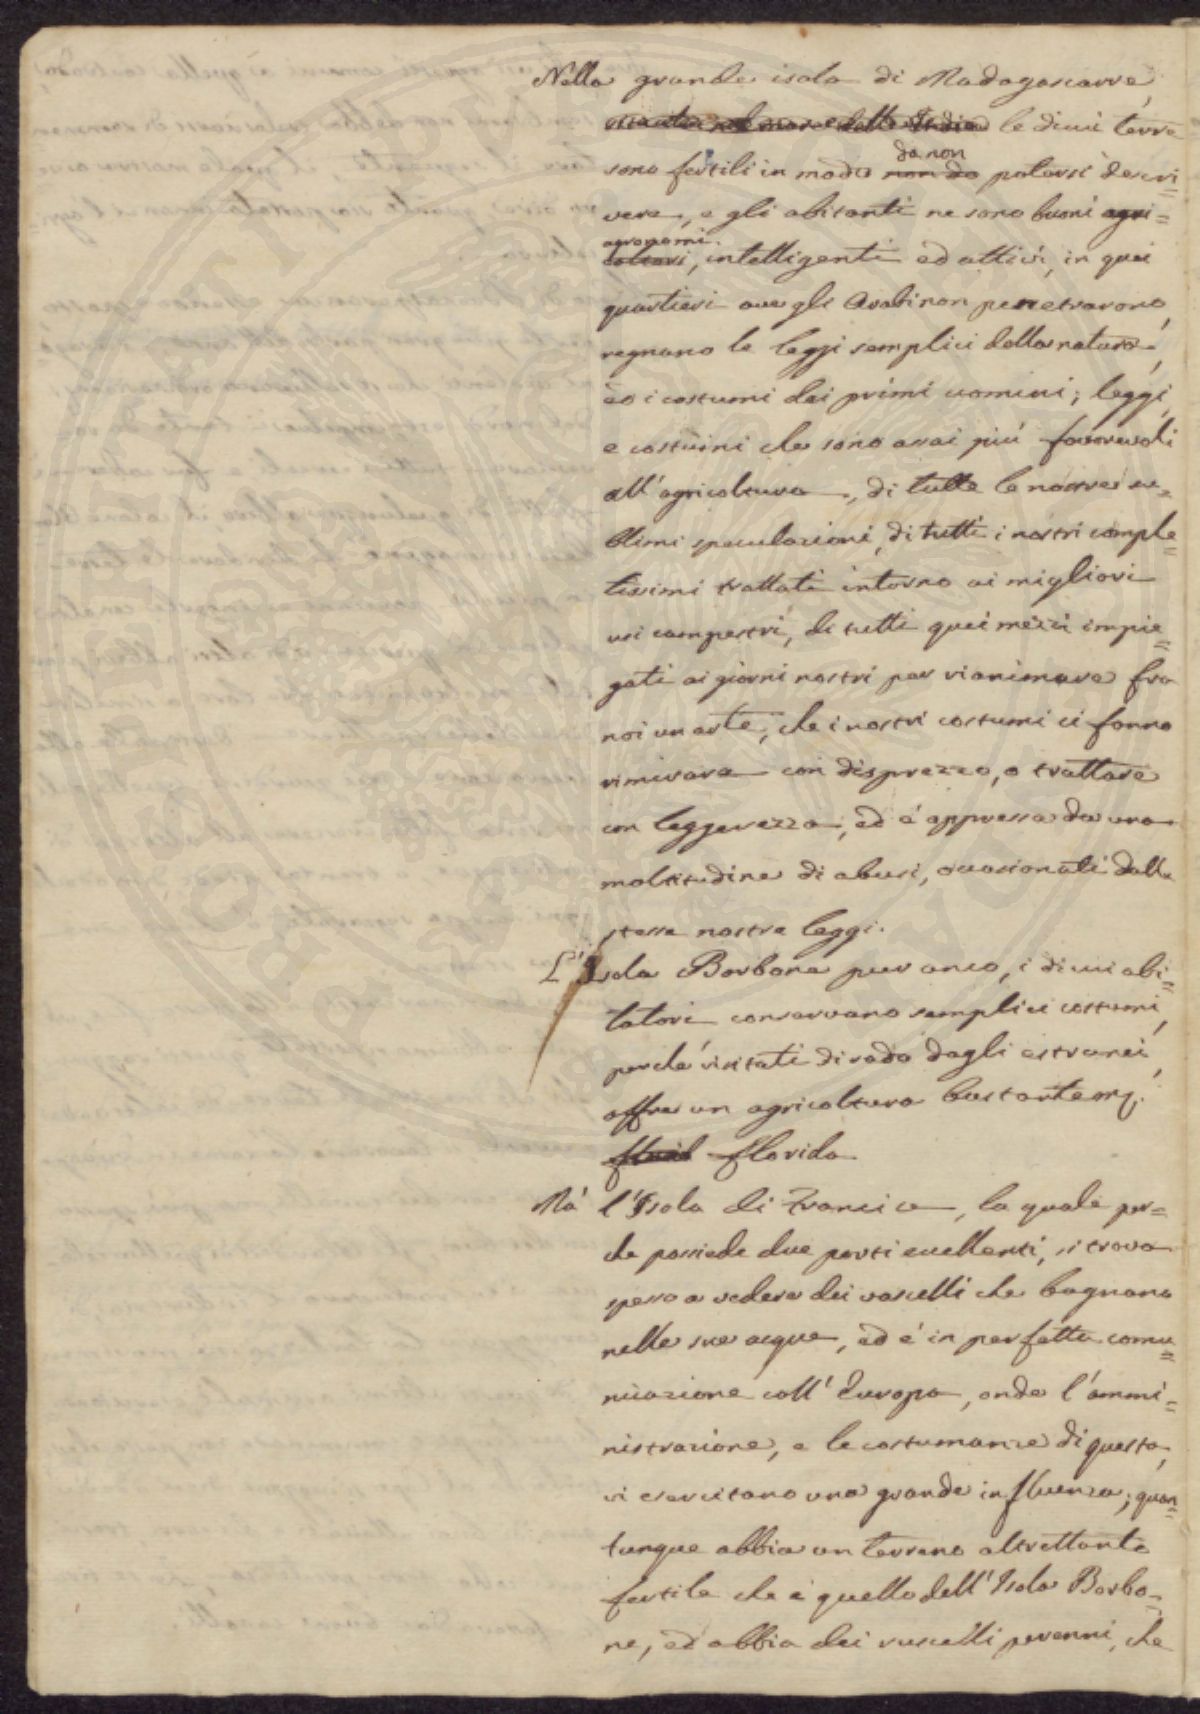 Nella grande isola di Madagascarre,
situata nel mare delle Indie le di cui terre
da non
sono fertili in modo non da potersi descri=
vere, e gli abitanti ne sono buoni agri=
agronomi.
coltori, intelligenti ed attivi, in quei
quartieri ove gli Arabi non penetrarono,
regnano le leggi semplici della natura,
ed i costumi dei primi uomini; leggi,
e costumi che sono assai più favorevoli
all'agricoltura, di tutte le nostre su=
blimi speculazioni, di tutti i nostri comple=
tissimi trattati intorno ai migliori
usi campestri, di tutti quei mezzi impie=
gati ai giorni nostri per rianimare fra
noi un arte, che i nostri costumi ci fanno
rimirare con disprezzo, o trattare
con leggerezza, ed è appressa da una
moltitudine di abusi, occasionati dalle
stesse nostre leggi.
L'Isola Borbone pur anco, i di cui abi=
tatori conservano semplici costumi,
perchè visitati di rado dagli estranei,
offre un agricoltura bastantem.
florida
Mà l'Isola di Francia, la quale per=
che possiede due porti eccellenti, si trova
spesso a vedere dei vascelli che bagnano
nelle sue acque, ed è in perfetta comu=
nicazione coll'Europa, onde l'ammi=
nistrazione, e le costumanze di questa,
vi esercitano una grande influenza; quan=
tunque abbia un terreno altrettanto
fertile che è quello dell'Isola Borbo=
ne, ed abbia dei ruscelli perenni, che